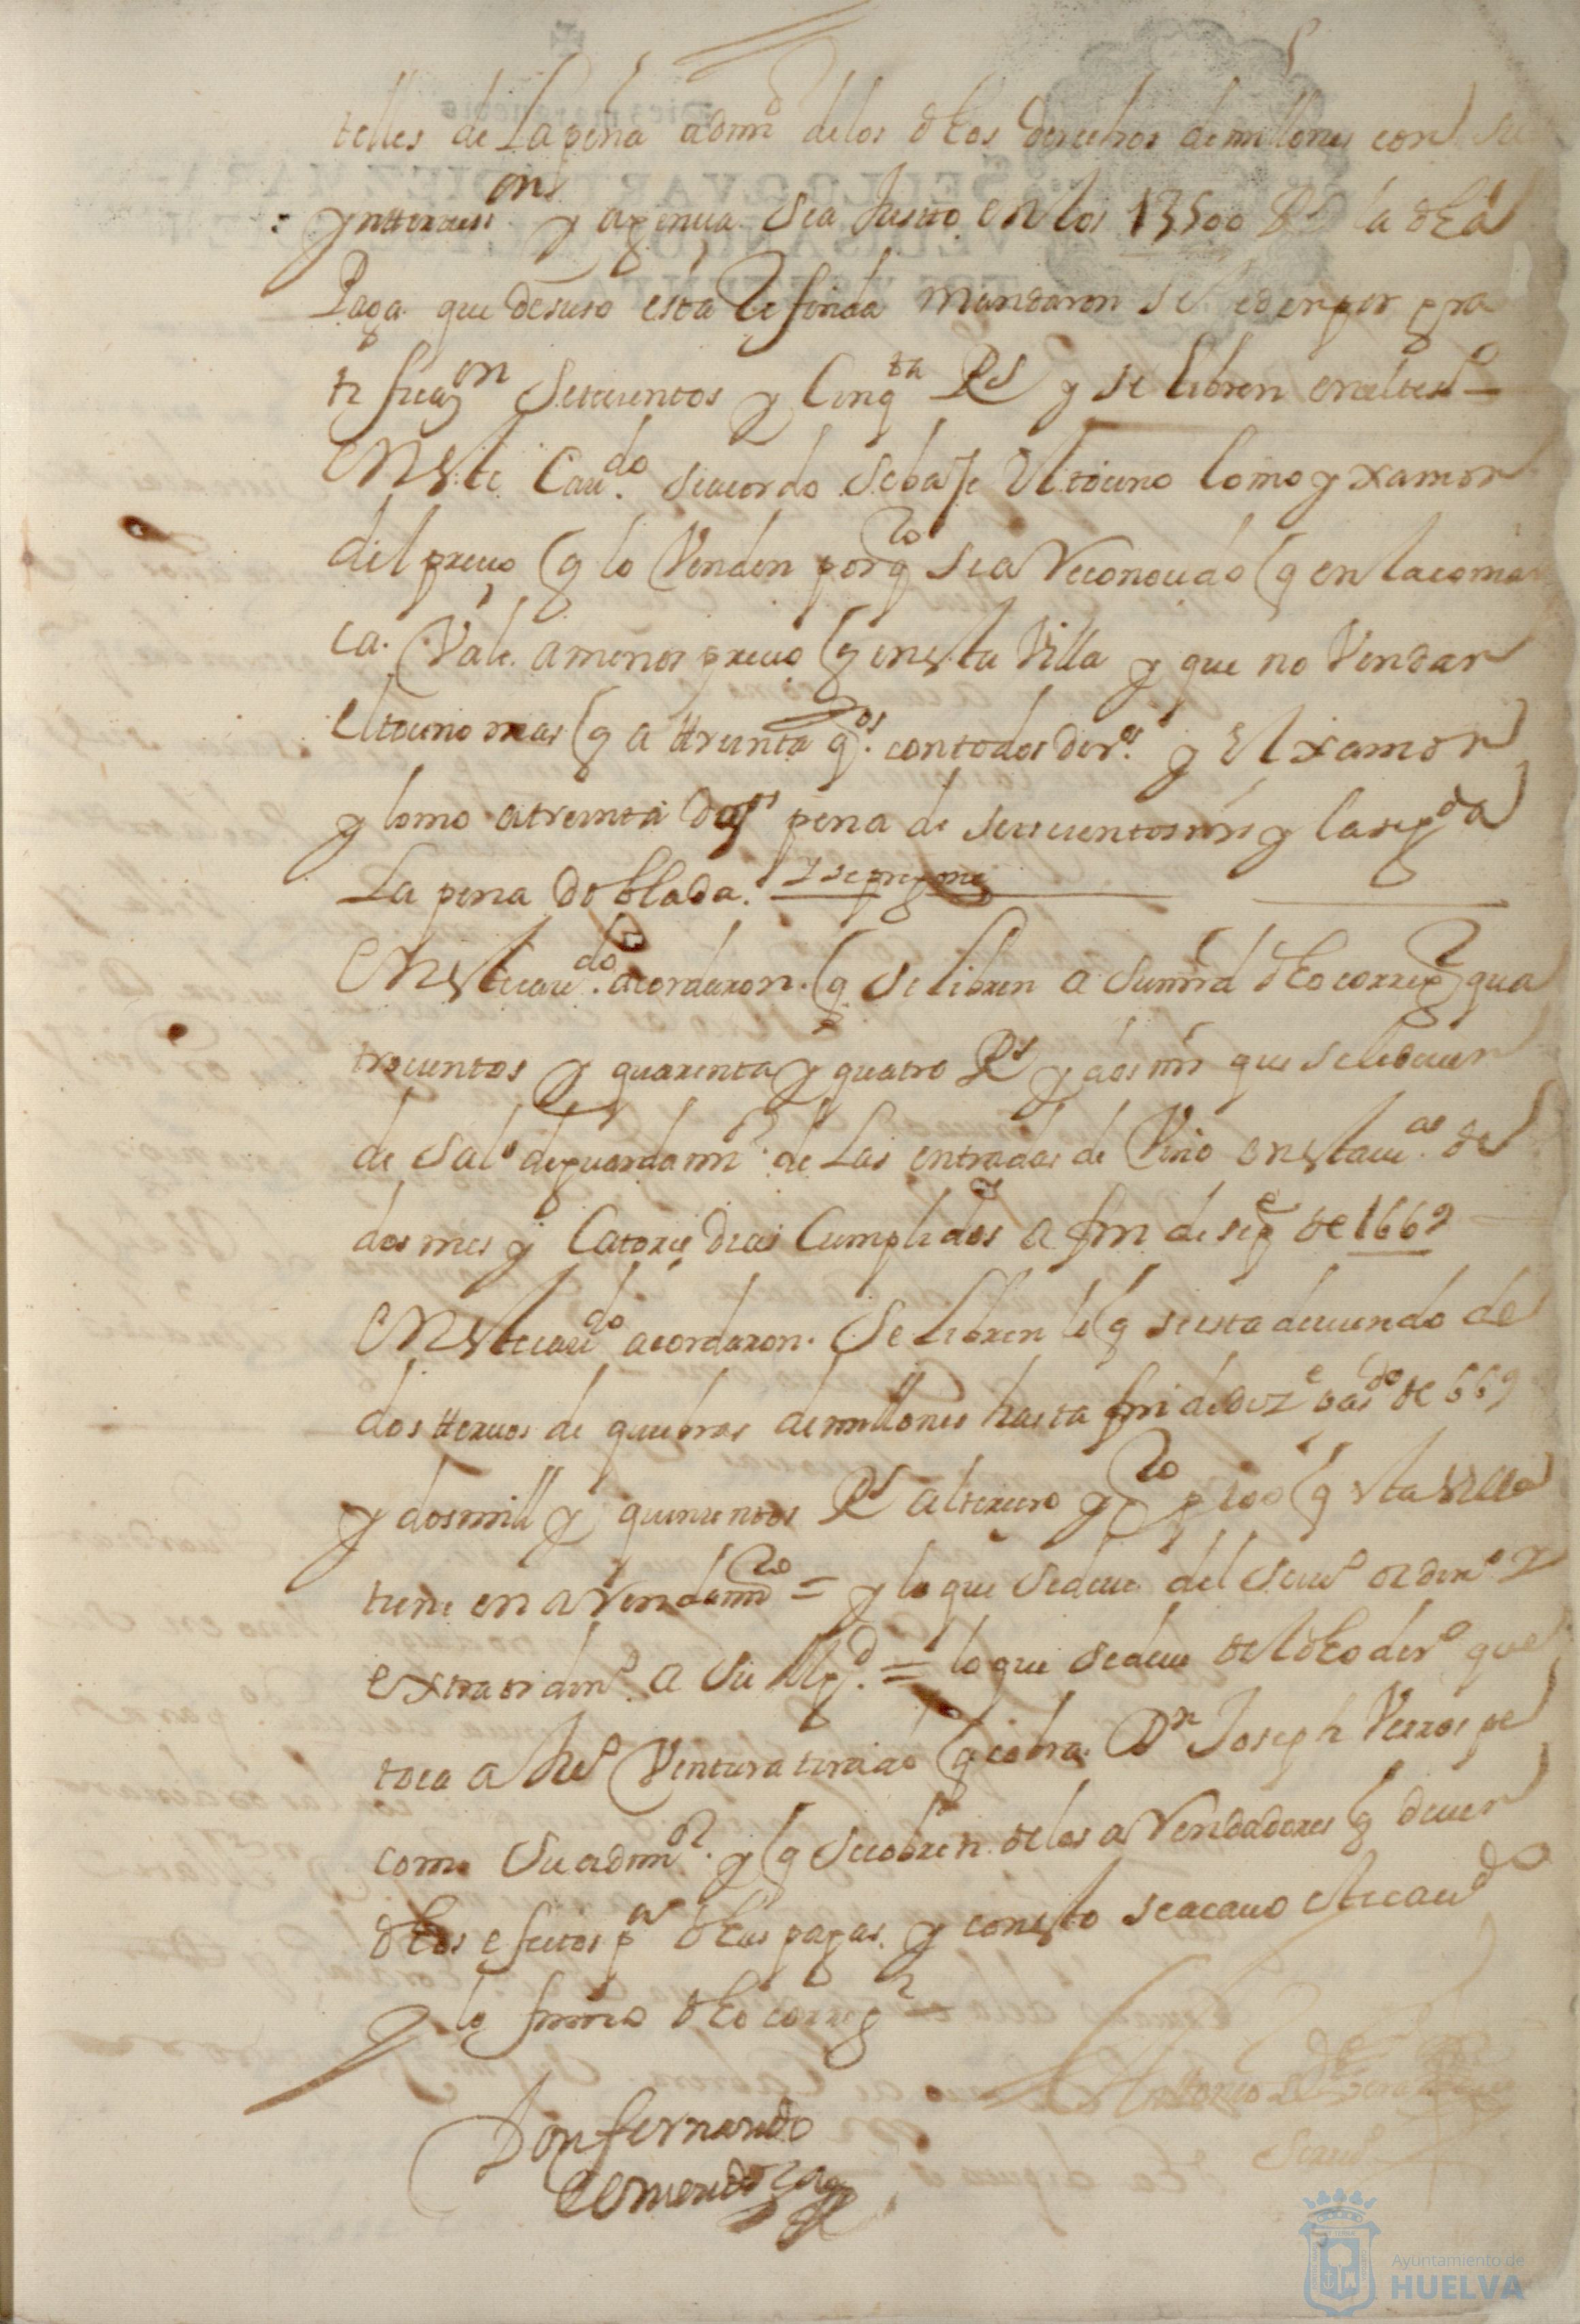 telles de la peña admor de los dhos derechos de millones con su
ynterzesion y agencia sea Justto en los 13500 Rs la dha
Paga que desuso esta Referida mandaron se le den por gra
tificazon setecientos y Cinqta Rs y se libren en el tesro
En este Cauildo se acordo se baje El tocino lomo y xamon
del precio q lo Venden porq sea Reconocido q en la comar
ca Vale a menor precio q en esta Villa y que no Vendan
el tocino mas q a ttreinta qos con todos deros y El xamon
y lomo a treinta y dos qos pena de seiscientos mrs y la segda
La pena doblada. Y se pregone
En este caudo acordaron q se libren a su mrd dho corregor qua
trocientos y quarenta y quatro Rs y dos mrs que se le deuen
de salo de guarda mor de las entradas de Vino en esta ua de
dos mes y Catorze dias Cumplidos a fin de sepe de 1669
En este caudo acordaron Se libren lo q se esta deuiendo de
dos ttercios de quiebras de millones hasta fin de Dize pasdo de 669
y dos mill y quinientos Rs al tercero q esta Villa
tiene en arrendamto = y lo que se deue del seruo ordino Y
extraordino a su Mgd = lo que se deue del dho dero que
toca a Ventura tirado q cobra Dn Joseph Verrospe
como su admor y q se cobren de los arrendadores q deuen
dhos efectos pa dhas pagas y con esto se acauo este caudo
y lo firmo dho corregr
Don fernando
de mendoza
Antonio de
Scriuo
Ayuntamiento de
HUELVA